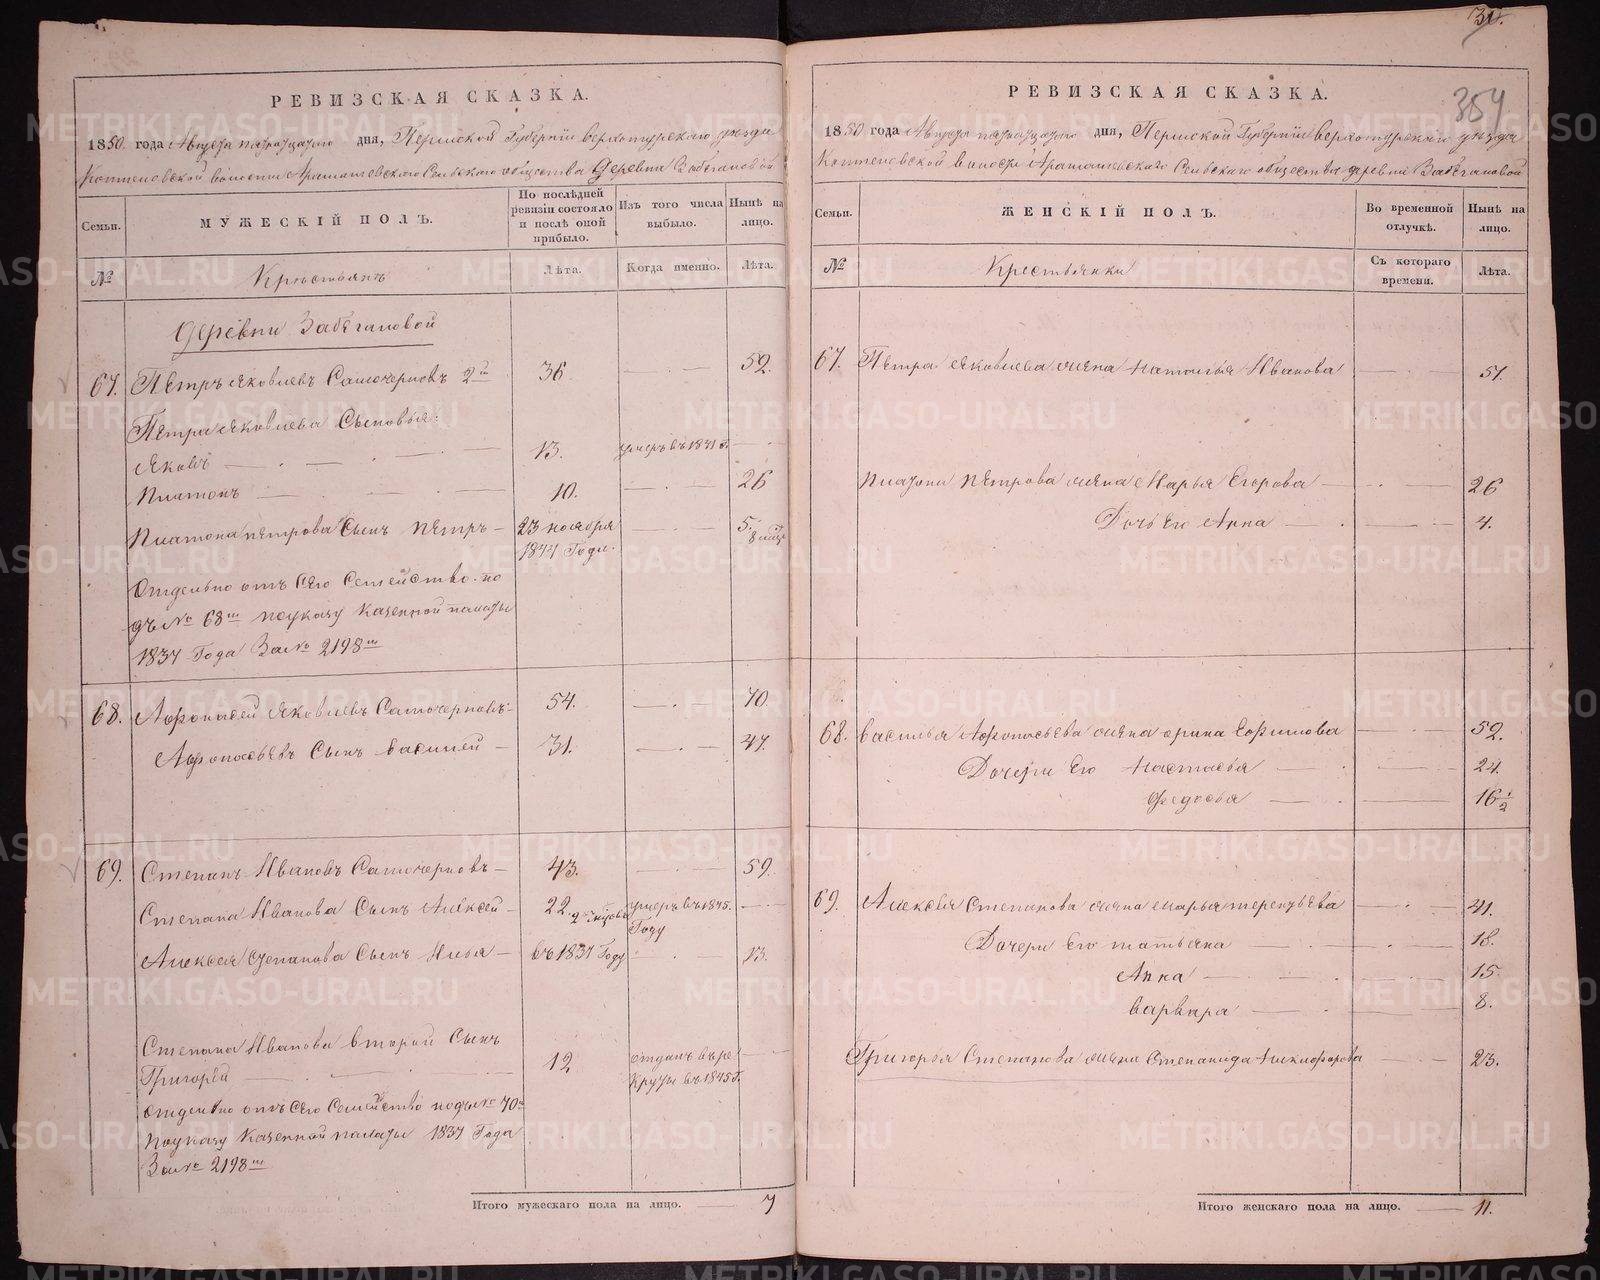 РЕВИЗСКАЯ СКАЗКА.
1850 года Августа дня, Пермской Губернiи Верхотурскаго уѣзда
Коптеловской волости Арамашевскаго Сельскаго общества Деревни Забегаловой
Семьи. МУЖЕСКIЙ ПОЛЪ. По послѣдней ревизiи состояло и послѣ оной прибыло. Изъ того числа выбыло. Нынѣ на лицо.
№ Крестьянъ Лѣта. Когда именно. Лѣта.
Деревни Забегаловой
67. Пѣтръ Яковлевъ Самочерновъ 2й 36 59.
Пѣтра Яковлева Сыновья:
Яковъ 13. умеръ въ 1841 г.
Платонъ 10. 26
Платона Пѣтрова Сынъ Пѣтръ 23 ноября 1844 Года. 5. 8 мѣс
Отдельно отъ Сего Семейство по
дъ № 68м поуказу Казенной палаты
1837 Года За № 2198м
68. Афонасей Яковлевъ Самочерновъ 54. 70.
Афонасьевъ Сынъ Василей 31. 47.
69. Степанъ Ивановъ Самочерновъ 43. 59.
Степана Иванова Сынъ Алексей 22. умеръ въ 1845. Году
Алексея Степанова Сынъ Илья въ 1837 Году 13.
Степана Иванова второй Сынъ
Григорей 12. отданъ въ рекруты въ 1845 г.
Отдельно отъ Сего Семейство подъ № 70м
поуказу Казенной палаты 1837 Года
За № 2198м
Итого мужескаго пола на лицо. 7
31.
354
РЕВИЗСКАЯ СКАЗКА.
1850 года Августа дня, Пермской Губернiи Верхотурскаго уѣзда
Коптеловской волости Арамашевскаго Сельскаго общества деревни Забегаловой
Семьи. ЖЕНСКIЙ ПОЛЪ. Во временной отлучкѣ. Нынѣ на лицо.
№ Крестьянки Съ котораго времени. Лѣта.
67. Пѣтра Яковлева жена Наталья Иванова 51.
Платона Пѣтрова жена Марья Егорова 26
Дочь Его Анна 4.
68. Василья Афонасьева жена Орина Ефимова 52.
Дочери Его Настасья 24.
Федосья 16 1/2
69. Алексея Степанова жена Марья Терентьева 41.
Дочери Его Татьяна 18.
Анна 15.
Варвара 8.
Григорья Степанова жена Степанида Никифорова 23.
Итого женскаго пола на лицо. 11.
METRIKI.GASO-URAL.RU